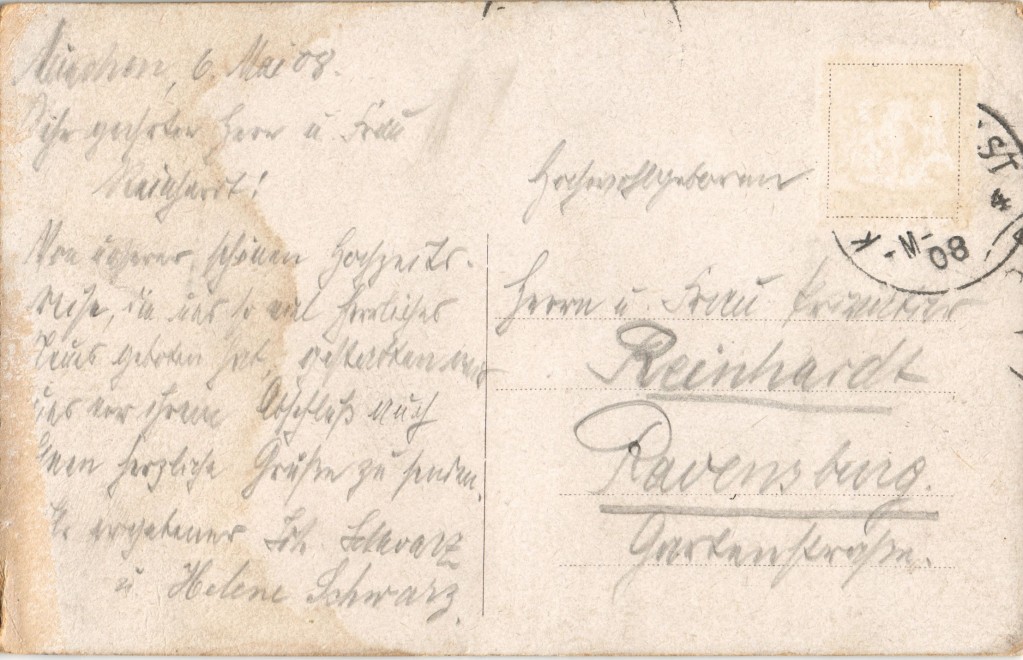 München, 6. Mai 08.
Sehr geehrter Herr u. Frau
Reinhardt!
Von unserer schönen Hochzeits-
reise, die uns so viel herrliches
Neues geboten hat, gestatten wir
uns vor ihrem Abschluß auch
Ihnen herzliche Grüße zu senden.
Ihr ergebener Joh. Schwarz
u. Helene Schwarz.
Hochwohlgeboren
Herrn u. Frau Privatier
Reinhardt
Ravensburg.
Gartenstraße.
ST
4
K
-M-
08